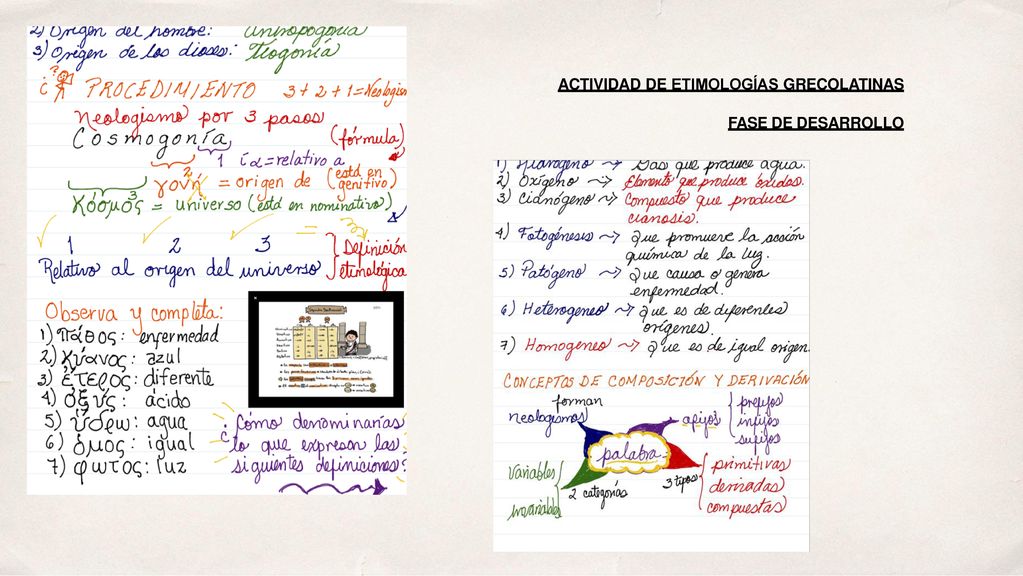 2) Origen del hombre: antropogonía
3) Origen de los dioses: Teogonía
¿? PROCEDIMIENTO 3+2+1=Neologism
Neologismo por 3 pasos
Cosmogonía (fórmula)
1 ία=relativo a
2 γονή = origen de (está en genitivo)
κόσμος 3 = universo (está en nominativo)
1 2 3 =
Relativo al origen del universo } Definición etimológica
Observa y completa:
1) πάθος: enfermedad
2) κύανος: azul
3) ἕτερος: diferente
4) ὀξύς: ácido
5) ὕδρω: agua
6) ὅμος: igual
7) φωτος: luz
¿Cómo denominarías
lo que expresan las
siguientes definiciones?
ACTIVIDAD DE ETIMOLOGÍAS GRECOLATINAS
FASE DE DESARROLLO
1) Hidrógeno ~> Gas que produce agua.
2) Oxígeno ~> Elemento que produce óxidos.
3) Cianógeno ~> Compuesto que produce
cianosis.
4) Fotogénesis ~> Que promueve la acción
química de la luz.
5) Patógeno ~> Que causa o genera
enfermedad.
6) Heterogeneo ~> Que es de diferentes
orígenes.
7) Homogeneo ~> Que es de igual origen.
CONCEPTOS DE COMPOSICIÓN Y DERIVACIÓN
forman
neologismos
palabra
afijos { prefijos
infijos
sufijos
Variables
invariables
2 categorías
3 tipos { primitivas
derivadas
compuestas